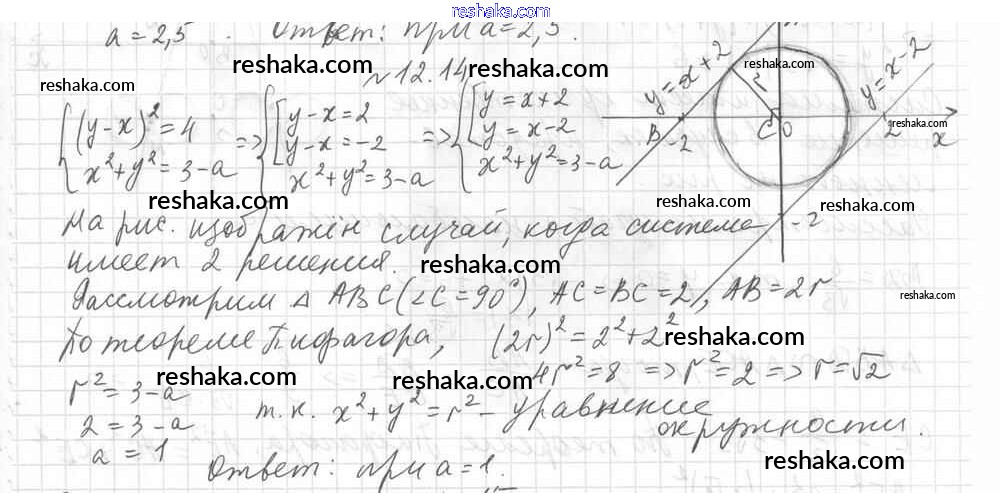 reshaka.com
a = 2,5 . Ответ: при a = 2,5.
reshaka.com
№ 12.14
reshaka.com
reshaka.com
{(y-x)² = 4
x² + y² = 3 - a
=> {[y - x = 2
y - x = -2
x² + y² = 3 - a
=> {[y = x + 2
y = x - 2
x² + y² = 3 - a
y = x + 2
reshaka.com
r
y = x - 2
B
-2
C
0
2
reshaka.com
x
-2
reshaka.com
reshaka.com
reshaka.com
На рис. изображён случай, когда система
имеет 2 решения.
reshaka.com
Рассмотрим Δ ABC (∠C = 90°), AC = BC = 2, AB = 2r
reshaka.com
По теореме Пифагора, (2r)² = 2² + 2²
reshaka.com
4r² = 8 => r² = 2 => r = √2
reshaka.com
reshaka.com
r² = 3 - a
т.к. x² + y² = r² - уравнение
окружности.
2 = 3 - a
a = 1
Ответ: при a = 1.
reshaka.com